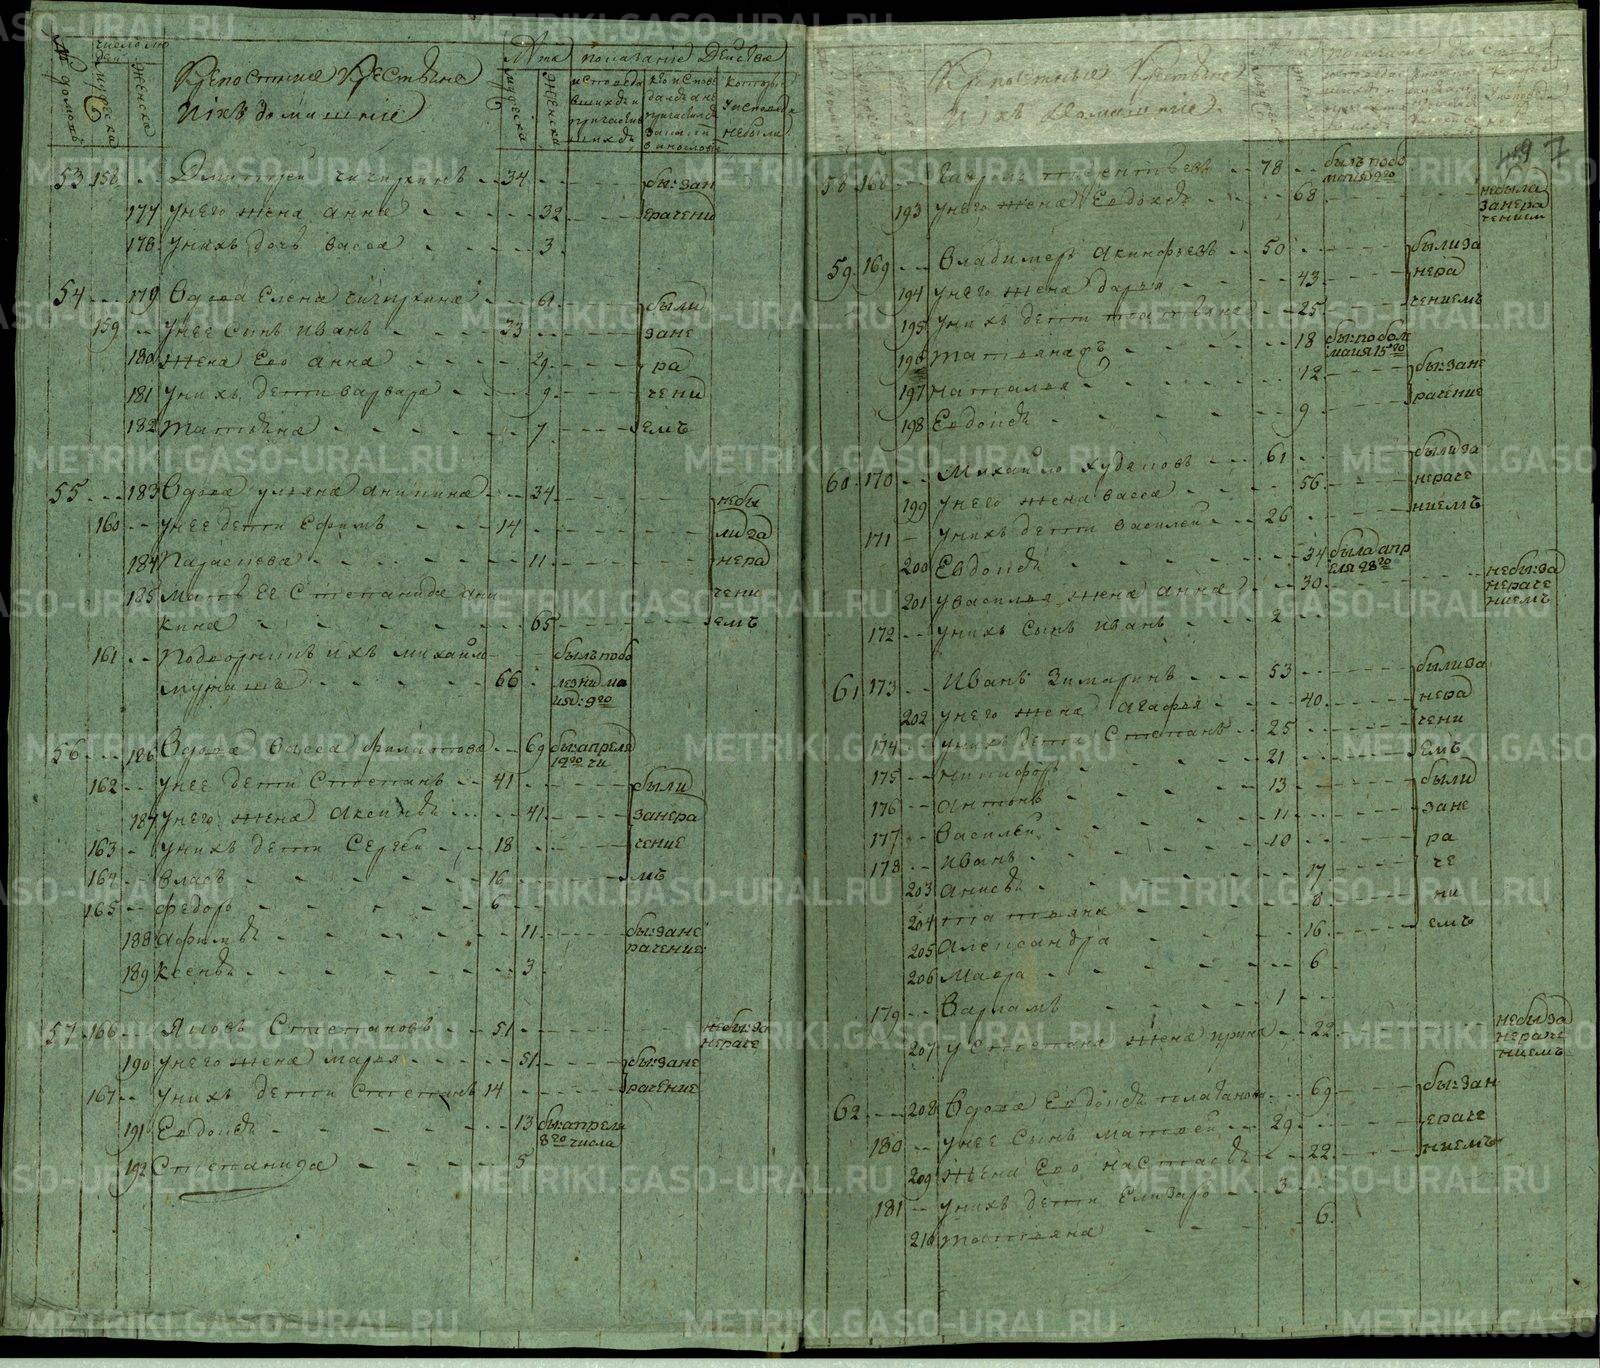 № домовъ
Число людей
Мужеска
Женска
Крепостные крестьяне
и ихъ домашние
Лѣта
Мужеска
Женска
показание действа
53 158 Дмитрей Чичиркинъ 34 бы: зан
177 у него жена Анна 32 ерачени
178 у нихъ дочь Васса 3
54 179 вдова Елена Чичиркина 61 были
159 у нее сынъ Иванъ 33 зане
180 жена Ево Анна 29 ра
181 у нихъ дети варвара 9 чени
182 татьяна 7 емъ
55 183 вдова ульяна Аникина 34 небы
160 у нее дети Ефимъ 14 ли за
184 Параскева 11 нера
185 мать ее Степанида Ани чени
кина 65 емъ
161 Подворникъ ихъ михайло былъ побо
66 лезни ма
ия: 9го
56 186 вдова васса филатова 69 бы: апреля
12го чи
162 у нее дети Степанъ 41 были
187 у него жена Аксинья 41 занера
163 у нихъ дети Сергей 18 чение
164 власъ 16 мъ
165 федоръ 6
188 Афимья 11 бы: зане
рачение:
189 Ксенья 3
57 166 Яковъ Степановъ 51 небы: за
нераче
190 у него жена марья 51 бы: зане
167 у нихъ дети Степанъ 14 рачение
191 Евдокея 13 бы: апреля
8го числа
192 Степанида 5
Крепостные крестьяне
и ихъ домашние
49 7
58 168 Гаврило терентьевъ 78 былъ побо
маия 9го
193 у него жена Евдокея 68 небыла
занера
чением
59 169 Владимеръ Акинфьевъ 50 были за
194 у него жена дарья 43 нера
195 у нихъ дети татьяна 25 чениемъ
196 татьяна 18 бы: по бол
маия 15го
197 наталья 12 бы: зане
198 Евдокея 9 рачение
60 170 Михайло Худяковъ 61 были за
199 у него жена васса 56 нераче
171 у нихъ дети василей 26 ниемъ
200 Евдокея 34 была апр
еля 28го
201 у василья жена анна 30 небы: за
нераче
ниемъ
172 у нихъ сынъ иванъ 2
61 173 Иванъ Зимаринъ 53 были за
202 у него жена агафья 40 нера
174 у нихъ дети Степанъ 25 чени
175 никифоръ 21 емъ
176 Антонъ 13 были
177 Василей 11 зане
178 Иванъ 10 ра
203 Анисья 17 че
204 татьяна 8 ни
205 Александра 16 емъ
206 Мавра 6
179 Варламъ 1
207 у Степана жена ирина 22 небы: за
нераче
ниемъ
62 208 вдова Евдокея 69 бы: зан
180 у нее сынъ матвей 29 ераче
209 жена Ево настасья 22 ниемъ
181 у нихъ дети Елизаръ 3
210 татьяна 6
METRIKI.GASO-URAL.RU